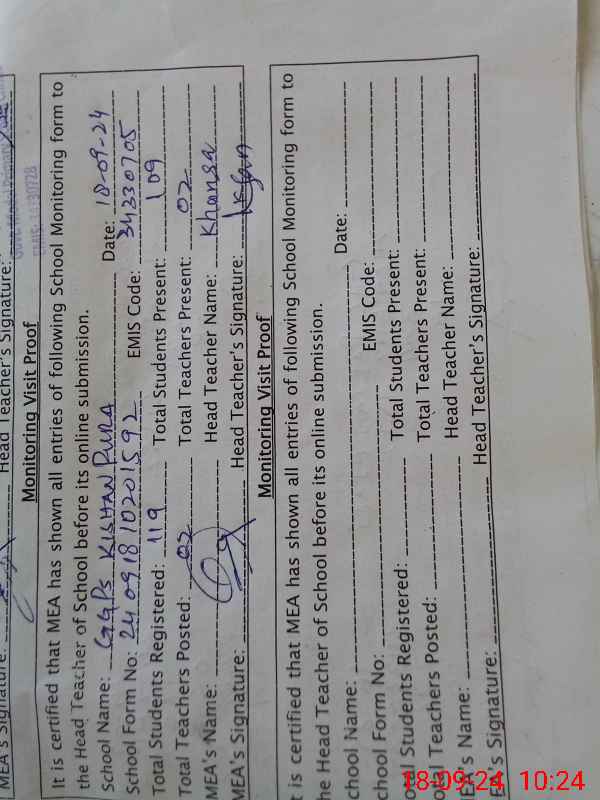 MEA's Signature: Head Teacher's Signature:
Monitoring Visit Proof
It is certified that MEA has shown all entries of following School Monitoring form to
the Head Teacher of School before its online submission.
School Name: GGPS KISHAN PURA Date: 18-09-24
School Form No: 240918102015 92 EMIS Code: 34330705
Total Students Registered: 119 Total Students Present: 109
Total Teachers Posted: 02 Total Teachers Present: 02
MEA's Name: Head Teacher Name: Khansa
MEA's Signature: Head Teacher's Signature:
Monitoring Visit Proof
t is certified that MEA has shown all entries of following School Monitoring form to
he Head Teacher of School before its online submission.
chool Name: Date:
chool Form No: EMIS Code:
otal Students Registered: Total Students Present:
otal Teachers Posted: Total Teachers Present:
EA's Name: Head Teacher Name:
EA's Signature: Head Teacher's Signature:
18-09-24 10:24